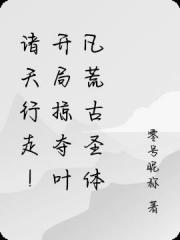 诸天行走！
开局掠夺叶
凡荒古圣体
零号昵称 著